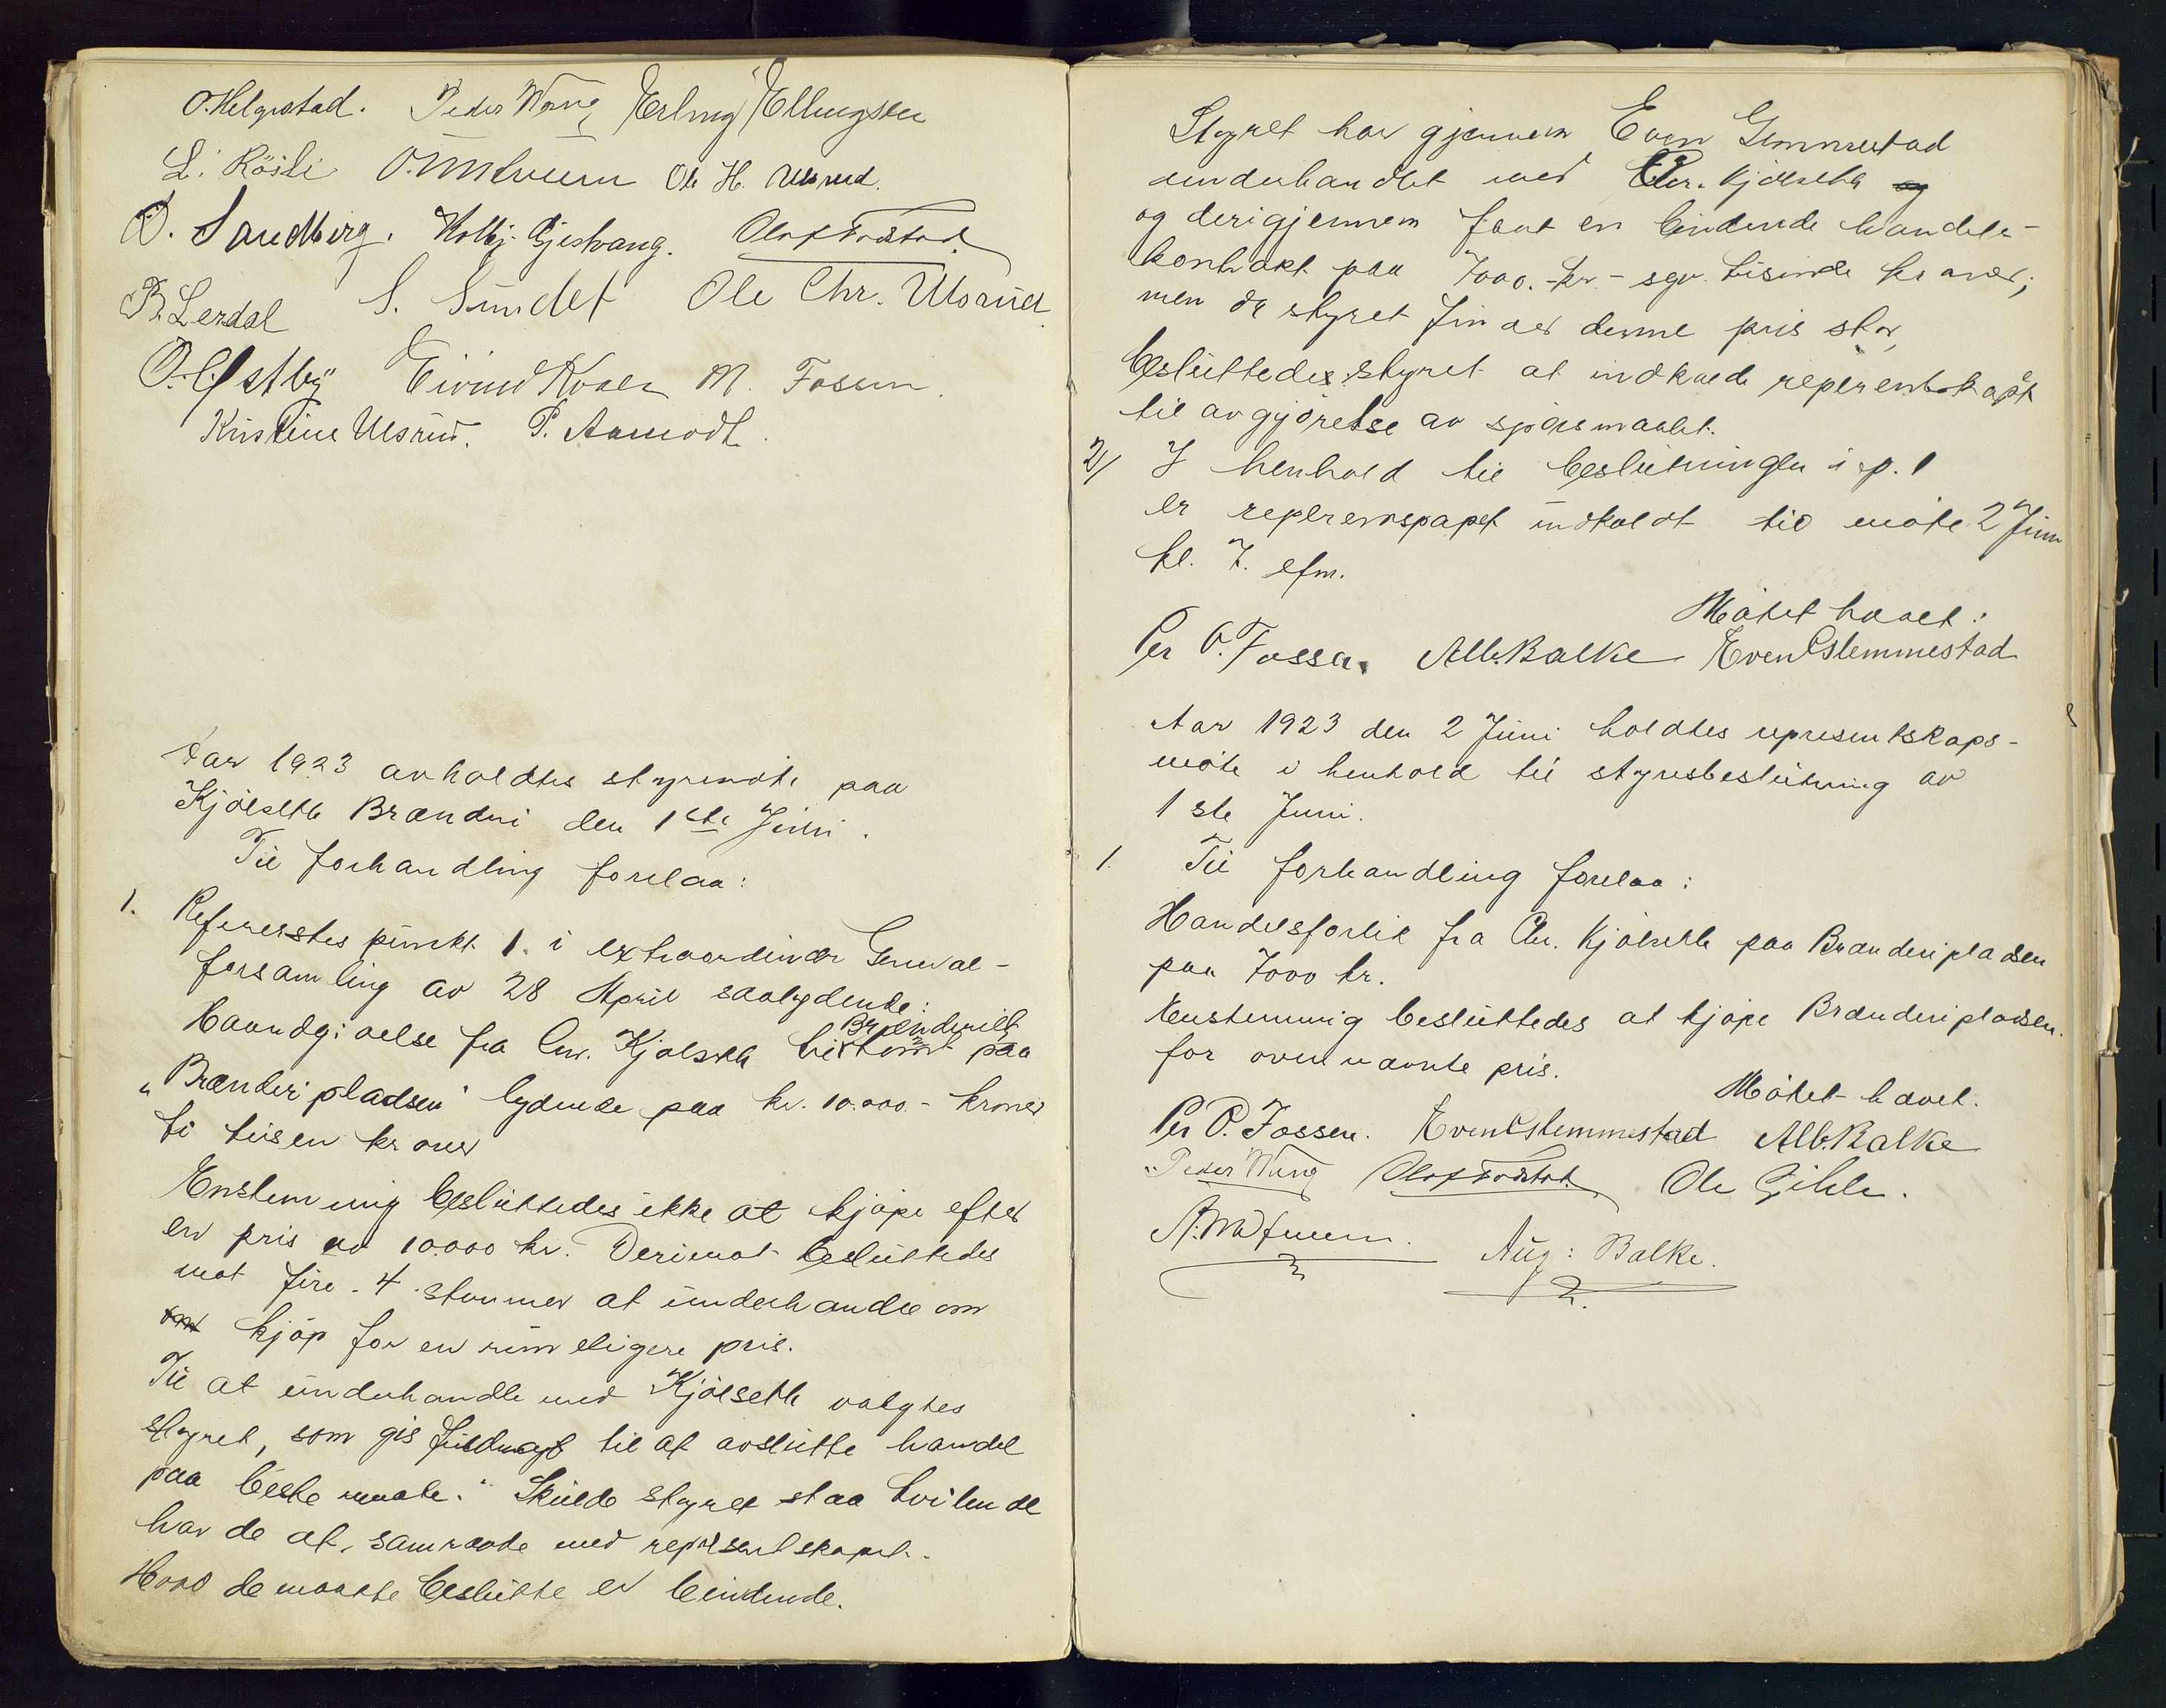 O. Helgestad. Peder Wang Erling Ellingsen
L. Röste O. Ole H. Ulsrud.
O. Sandberg. Kolbj. Gjestvang. Olaf
B. Lerdal S. Sundet Ole Chr. Ulsrud
O. Østby Eivind M. Fossum.
Kristine Ulsrud. P. Aamodt.
Aar 1923 avholdtes styremöte paa
Kjölseth Brænderi den 1ste Juni.
Til forhandling forelaa:
1. Refererstes punkt 1. i extraordinær General-
forsamling av 28 April saalydende:
Brænderiets
Haandgivelse fra Chr. Kjölseth tilkomst paa
"Brænderipladsen" lydende paa kr. 10.000 - kroner
ti tusen kroner
Enstemmig besluttedes ikke at kjöpe efter
en pris av 10.000 kr. Derimot besluttedes
mot fire - 4 - stemmer at underhandle om
om kjöp for en rimeligere pris.
Til at underhandle med Kjölseth valgtes
styret, som gis fuldmagt til at avslutte handel
paa beste maate." Skulde styret staa tvilende
har de at samraade med represent skapet.
Hvad de maatte beslutte er bindende.
Styret har gjennem Even Slemmestad
underhandlet med Chr. Kjölseth og
og derigjennem faat en bindende handels-
kontrakt paa 7000.- kr - syv tusinde kroner;
men da styret finder denne pris stor,
besluttedes styret at indkalde represntskapt
til avgjörelse av spörsmaalet.
2/ I henhold til beslutningen i p. 1
er indkaldt til möte 2 Juni
kl. 7. efm.
Mötet hævet:
Per O. Fossen. Alb. Balke Even Slemmestad
Aar 1923 den 2 Juni holdtes represent skaps-
möte i henhold til styrebeslutning av
1 ste Juni.
1. Til forhandling forelaa:
Handelsforlik fra Chr. Kjölseth paa Brænderipladsen
paa 7000 kr.
Enstemmig besluttedes at kjöpe Brænderipladsen.
for ovennævnte pris.
Mötet hævet.
Per O. Fossen. Even Slemmestad Alb. Balke
Peder Wang Olaf Ole Gihle.
Aug: Balke.